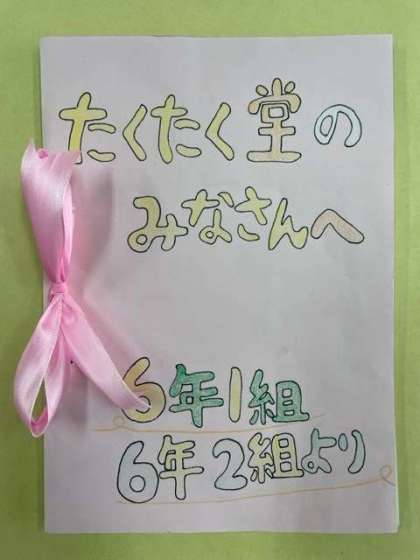 たくたく堂の
みなさんへ
6年1組
6年2組より